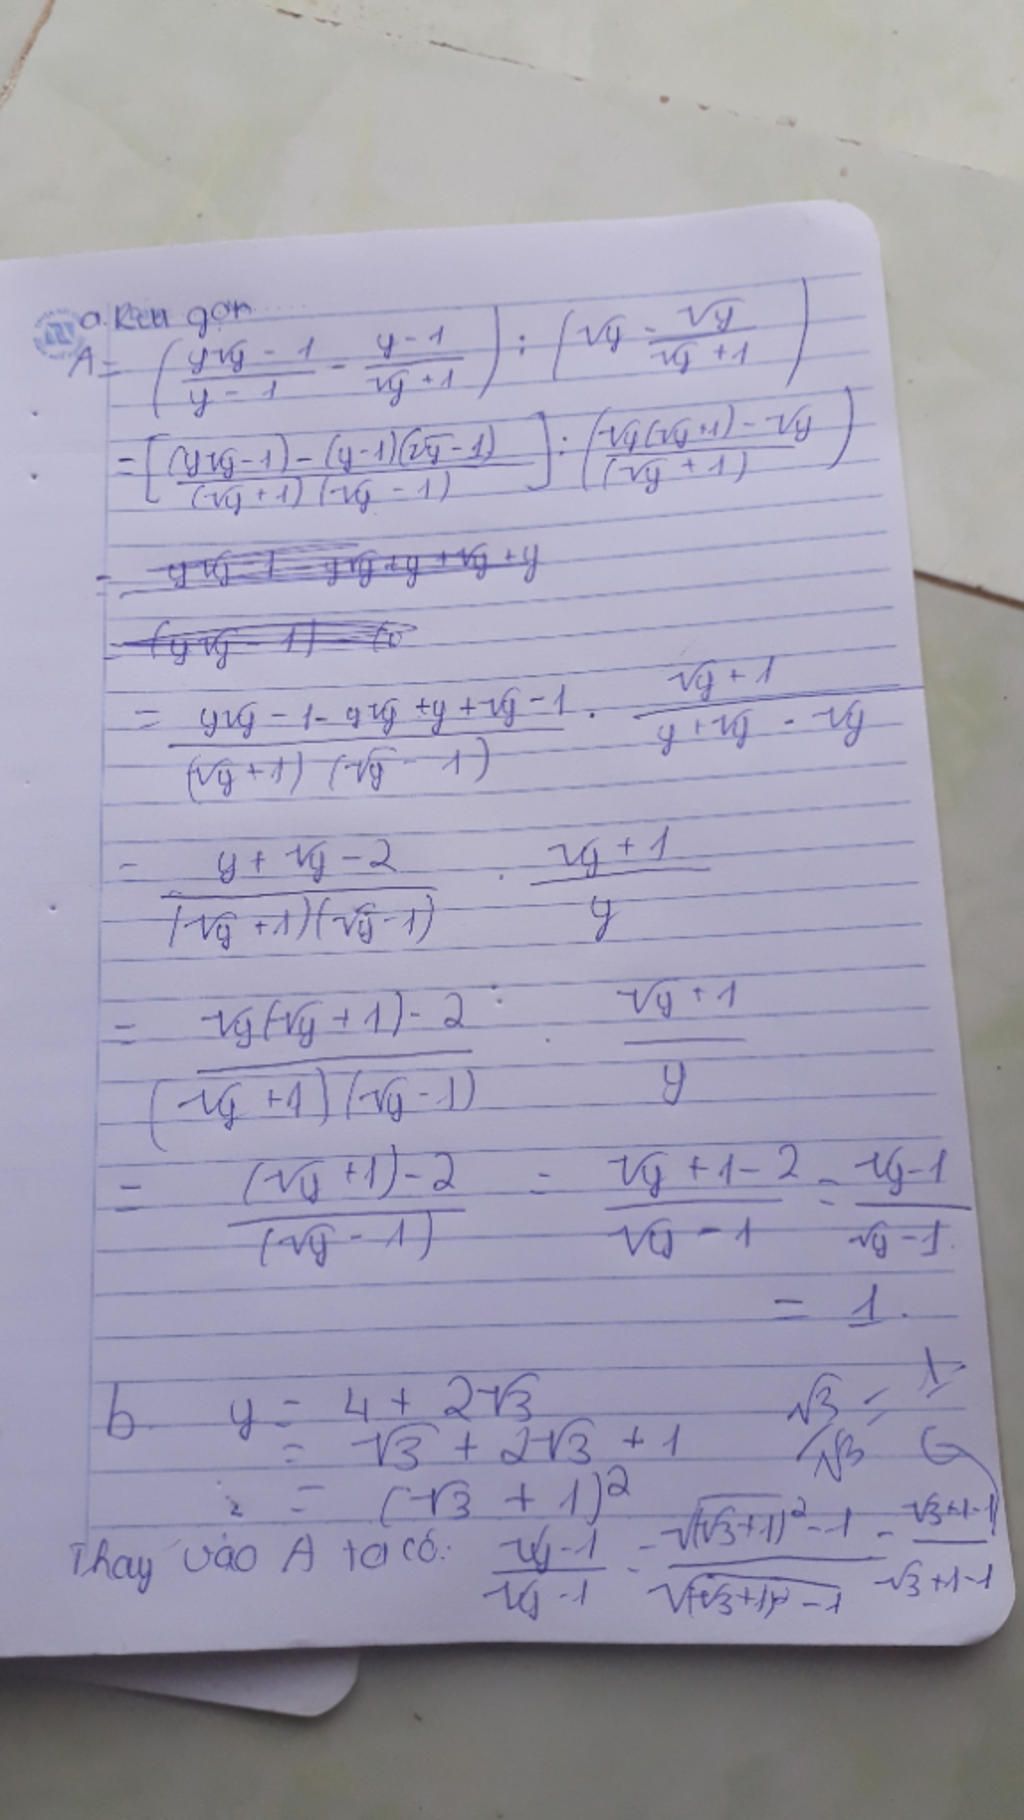 a. Rút gọn
A = (y√y - 1 / y - 1 - y - 1 / √y + 1) : (√y - √y / √y + 1)
= [(y√y - 1) - (y - 1)(√y - 1) / (√y + 1)(√y - 1)] : (√y(√y + 1) - √y / (√y + 1))
= y√y - 1 - y√y + y + √y - 1 / (√y + 1)(√y - 1) . √y + 1 / y + √y - √y
= y + √y - 2 / (√y + 1)(√y - 1) . √y + 1 / y
= √y(√y + 1) - 2 / (√y + 1)(√y - 1) . √y + 1 / y
= (√y + 1) - 2 / (√y - 1) = √y + 1 - 2 / √y - 1 = √y - 1 / √y - 1
= 1.
b. y = 4 + 2√3
= √3 + 2√3 + 1
= (√3 + 1)²
Thay vào A ta có: √y - 1 / √y - 1 = √(√3 + 1)² - 1 / √(√3 + 1)² - 1 = √3 + 1 - 1 / √3 + 1 - 1